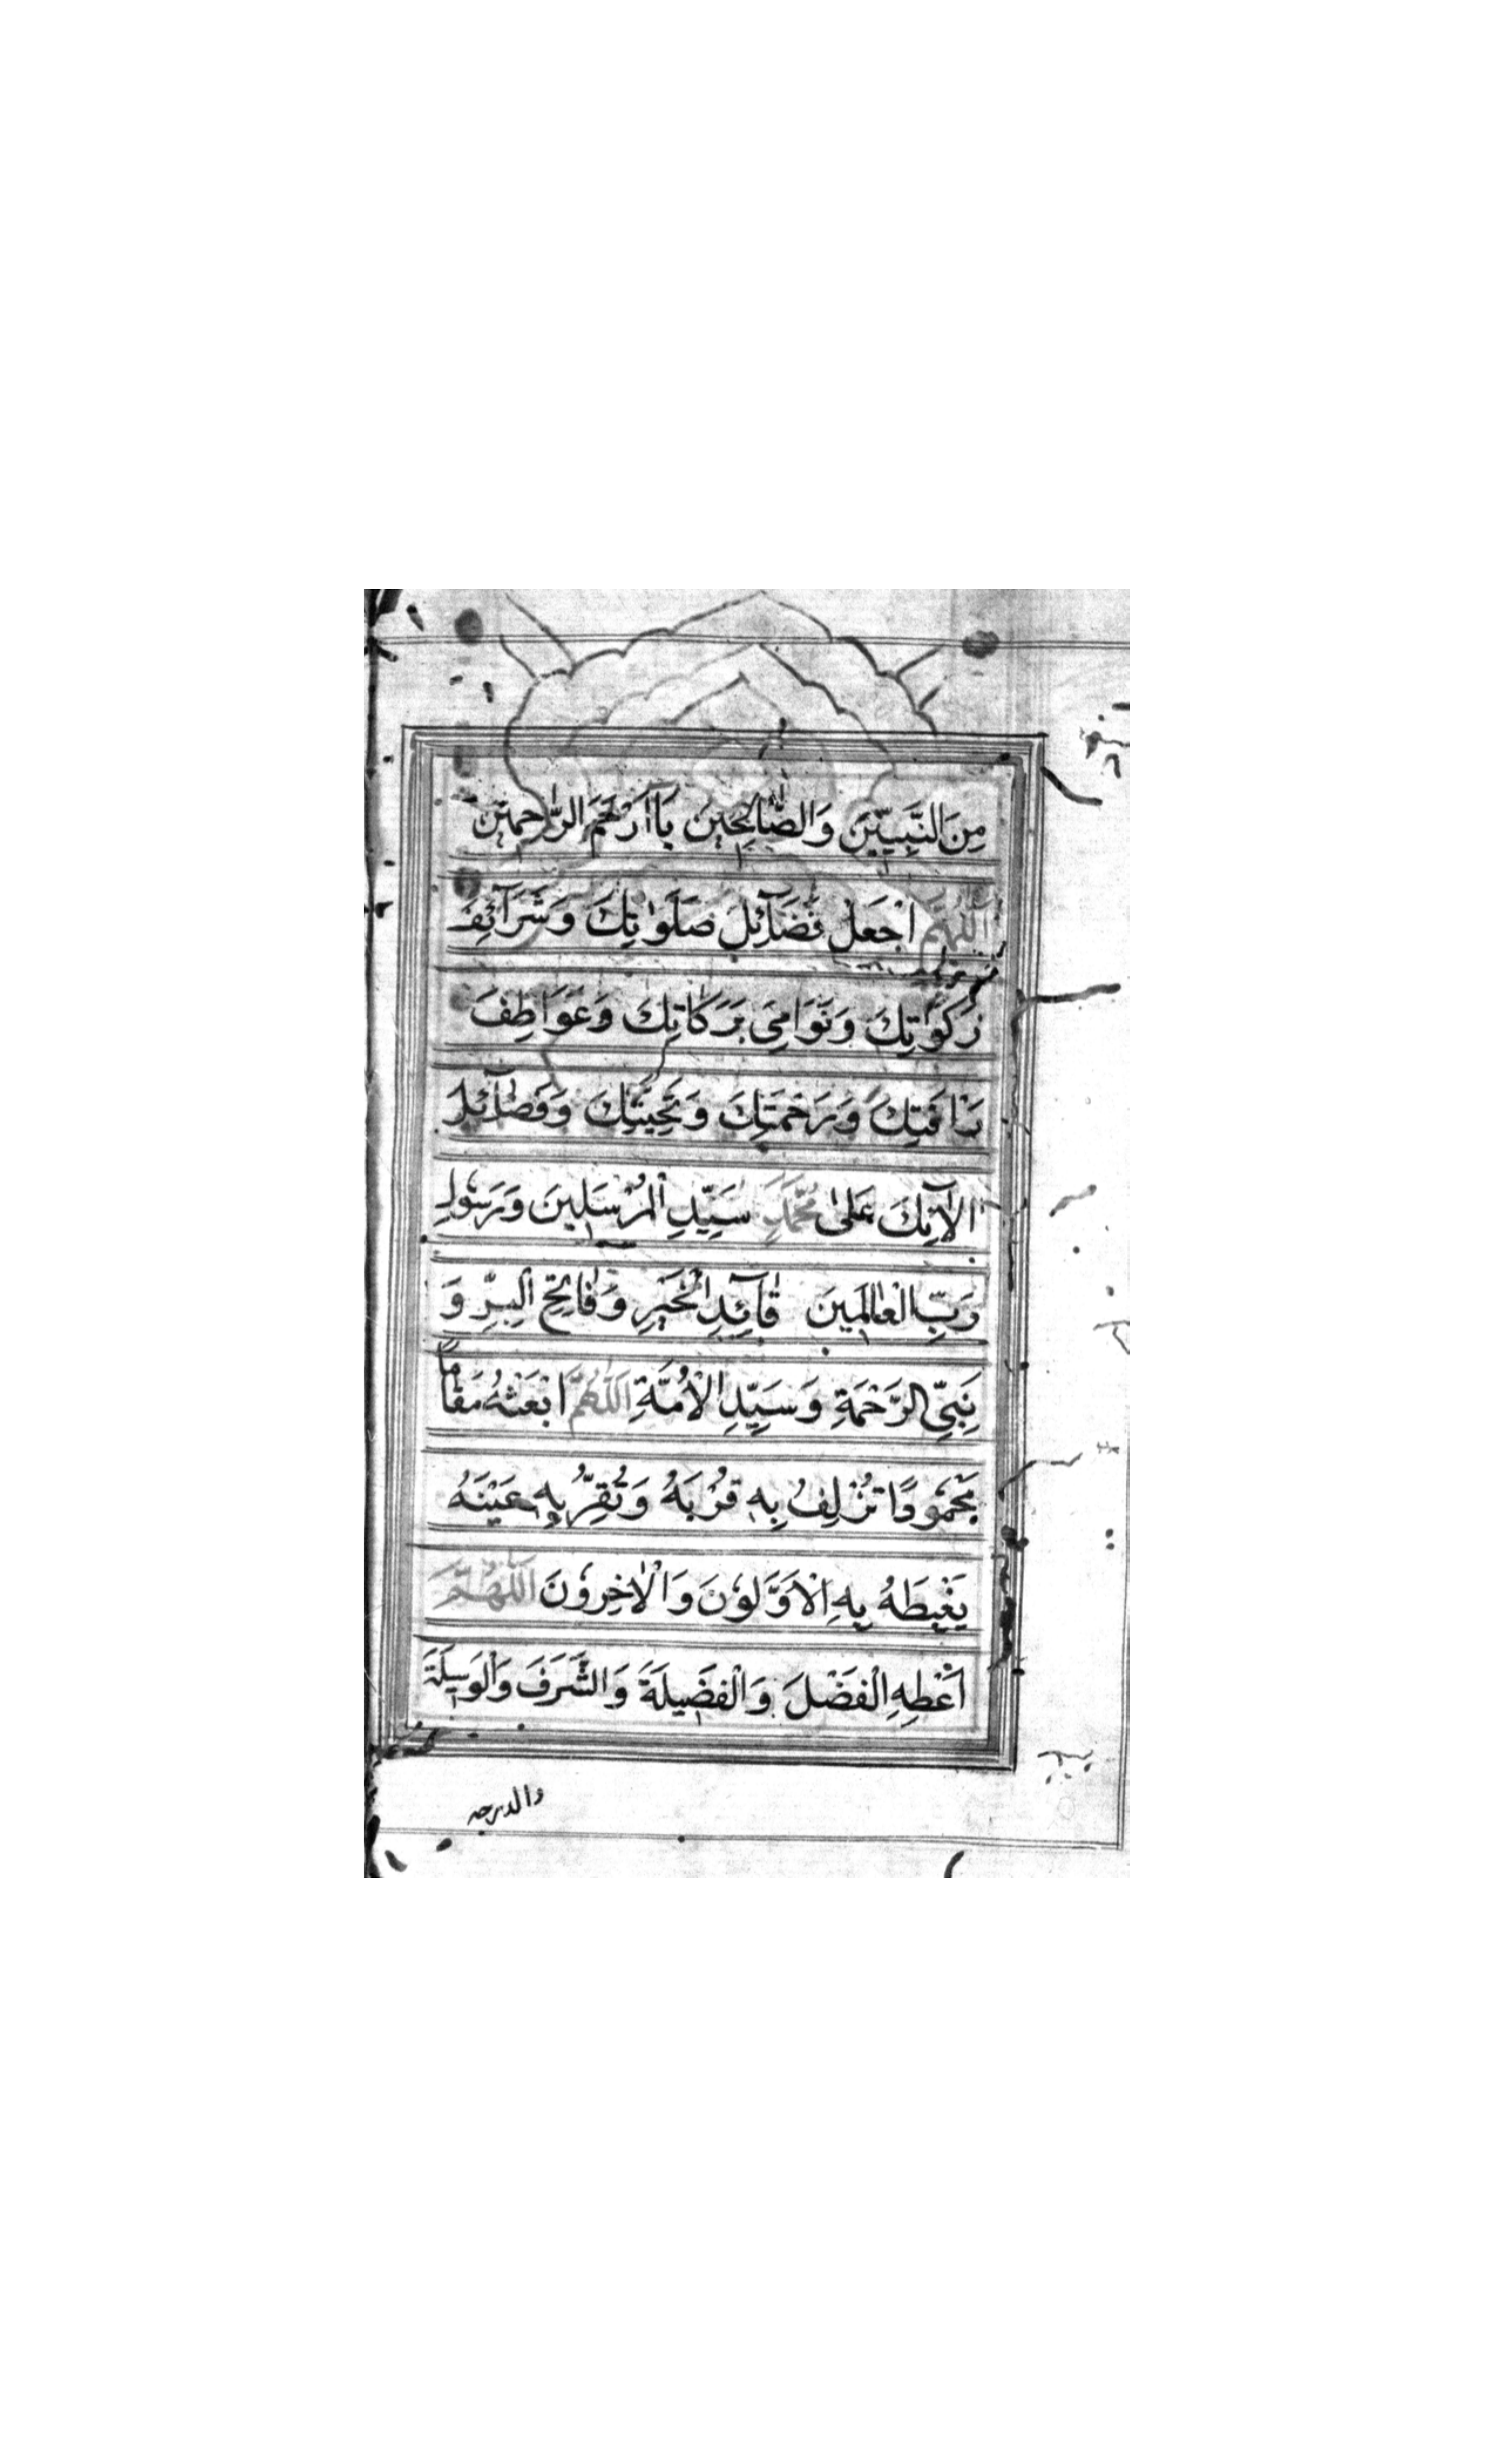 مِنَ النَّبِيِّينَ وَالصَّالِحِينَ يَا اَرْحَمَ الرَّاحِمِينَ
اَللّٰهُمَّ اجْعَلْ فَضَآئِلَ صَلَوٰتِكَ وَشَرَآئِفَ
زَكَوٰتِكَ وَنَوَامِىَ بَرَكَاتِكَ وَعَوَاطِفَ
رَاْفَتِكَ وَرَحْمَتِكَ وَتَحِيَّتِكَ وَفَضَآئِلَ
اٰلَآئِكَ عَلىٰ مُحَمَّدٍ سَيِّدِ الْمُرْسَلِينَ وَرَسُولِ
رَبِّ الْعَالَمِينَ قَآئِدِ الْخَيْرِ وَفَاتِحِ الْبِرِّ وَ
نَبِيِّ الرَّحْمَةِ وَسَيِّدِ الْاُمَّةِ اَللّٰهُمَّ ابْعَثْهُ مَقَامًا
مَحْمُودًا تُزْلِفُ بِهِ قُرْبَهُ وَتُقِرُّ بِهِ عَيْنَهُ
يَغْبِطُهُ بِهِ الْاَوَّلُونَ وَالْاٰخِرُونَ اَللّٰهُمَّ
اَعْطِهِ الْفَضْلَ وَالْفَضِيلَةَ وَالشَّرَفَ وَالْوَسِيلَةَ
والدرجه